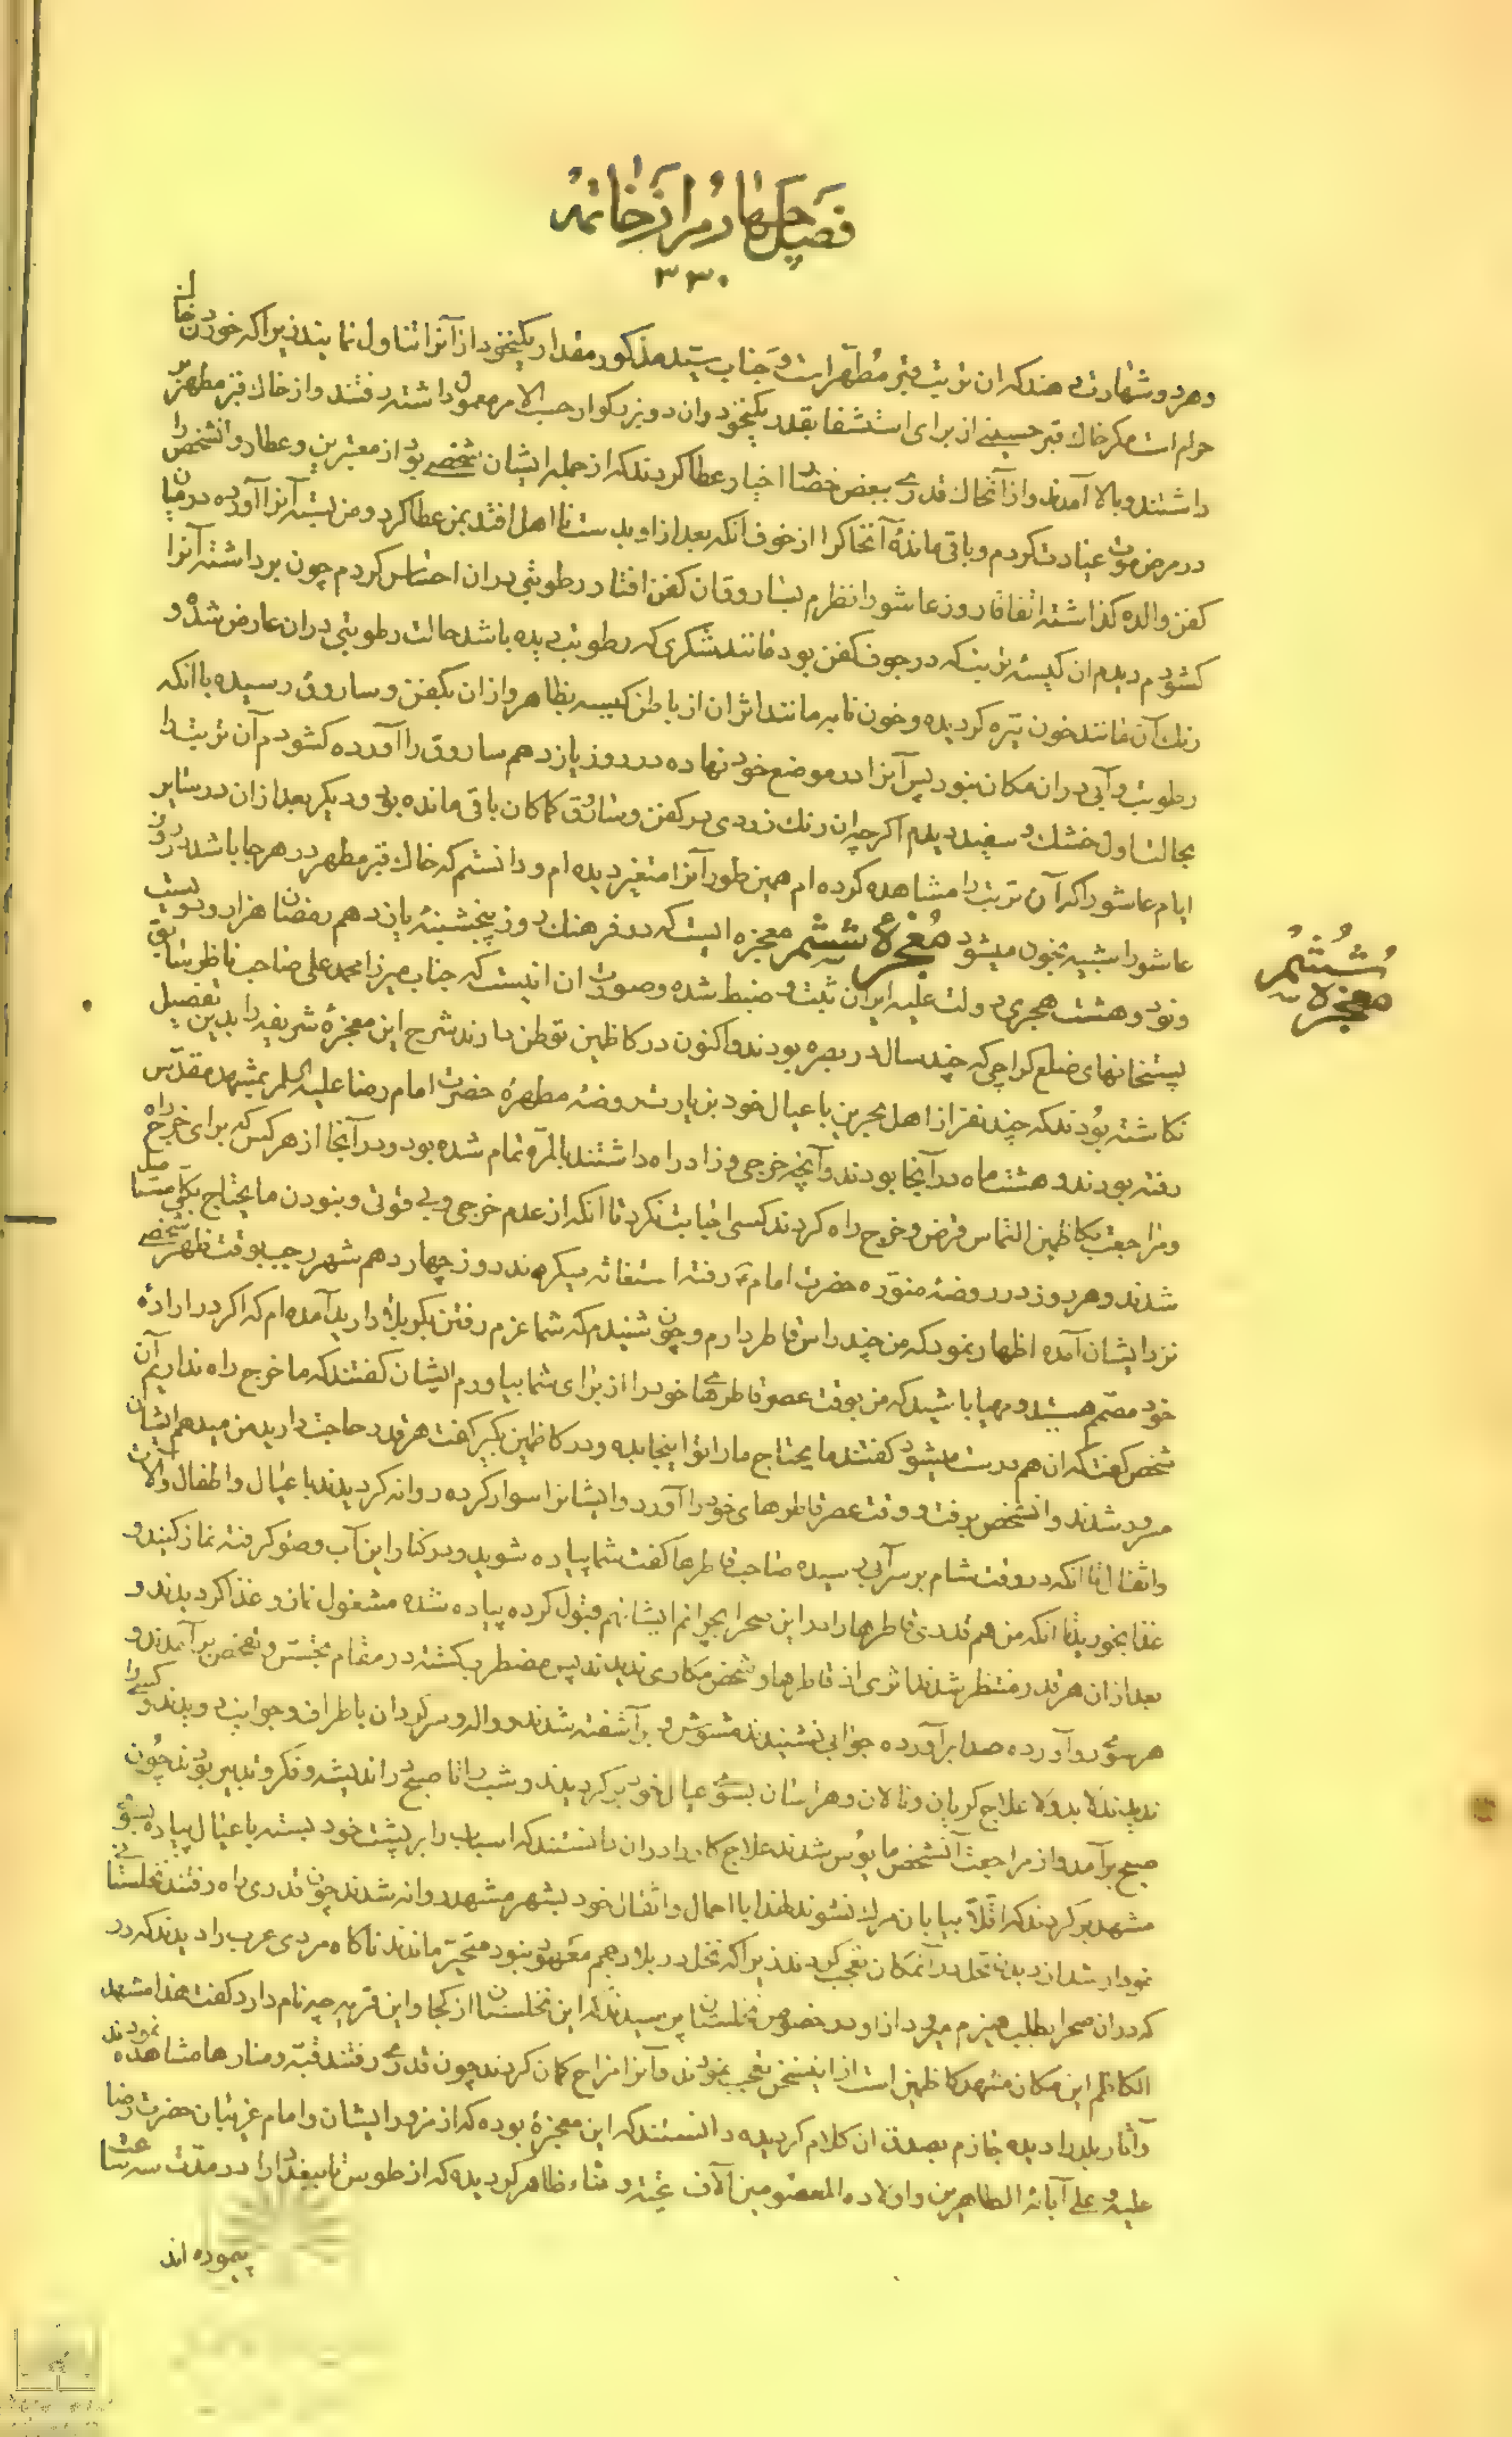 فصل چهارم از خاتمه
۳۳۰
و هر دو شهادت دهند که ان تربت قبر مطهر است و جناب سید مذکور مقدار یکنخود از آنرا تناول نمایند زیرا که خوردن خاک
حرام است مگر خاک قبر حسینی از برای استشفا بقدر یکنخود و ان دو بزرگوار حسب الامر معمول داشته رفتند و از خاک قبر مطهر بر
داشتند و بالا آمدند و از آنخاک قدری ببعض حضار اخیار عطا کردند که از جمله ایشان شخصی بود از معتبرین و عطار و انشخص را
در مرض موت عیادت کردم و باقی مانده آنخاکرا از خوف انکه بعد از او بدست نا اهل افتد بمن عطا کرد و من بسته آنرا آورده در میان
کفن والده گذاشته اتفاقا روز عاشورا نظرم بساروقان کفن افتاد رطوبتی در ان احساس کردم چون برداشته آنرا
کشودم دیدم ان کیسه تربت که در جوف کفن بود مانند شکری که رطوبت دیده باشد حالت رطوبتی در ان عارض شده و
رنک آن مانند خون تیره گردیده و خون نابه مانند اثر ان از باطن کیسه بظاهر و از ان بکفن و ساروق رسیده با انکه
رطوبت و آبی در ان مکان نبود پس آنرا در موضع خود نهاده در روز یازدهم ساروق را آورده کشودم آن تربت را
بحالت اول خشک و سفید دیدم اگر چه ان رنک زردی در کفن و ساروق کماکان باقی مانده بود و دیگر بعد از ان در سایر
ایام عاشورا که آن تربت را مشاهده کرده ام همین طور آنرا متغیر دیده ام و دانستم که خاک قبر مطهر در هر جا باشد در روز
عاشورا شبیه بخون میشود معجزه ششم معجزه ایست که در فرهنک روز پنجشنبه یازدهم رمضان هزار و دویست
و نود و هشت هجری دولت علیه ایران ثبت و ضبط شده و صورت ان اینست که جناب میرزا محمد علی صاحب ناظر سابق
پستخانهای ضلع کراچی که چند سال در بصره بودند و اکنون در کاظمین توطن دارند شرح این معجزه شریفه را بدین تفصیل
نکاشته بودند که چند نفر از اهل بحرین با عیال خود بزیارت روضه مطهره حضرت امام رضا علیه السلام بمشهد مقدس
رفته بودند و هشت ماه در آنجا بودند و آنچه خرجی و زاد راه داشتند بالمره تمام شده بود و در آنجا از هر کس که برای خرج راه
و مراجعت بکاظمین التماس قرض و خرج راه کردند کسی اجابت نکرد تا انکه از عدم خرجی و بی قوتی و نبودن ما یحتاج بکلی مستاصل
شدند و هر روز در روضه منوره حضرت امام ع رفته استغاثه میکردند روز چهاردهم شهر رجب بوقت ظهر شخصی
نزد ایشان آمده اظهار نمود که من چند راس قاطر دارم و چون شنیدم که شما عزم رفتن بکربلا دارید آمده ام که اگر در اراده
خود مصمم هستید و مهیا باشید که من بوقت عصر قاطرهای خود را از برای شما بیاورم ایشان گفتند که ما خرج راه نداریم آن
شخص گفت که ان هم درست میشود گفتند ما یحتاج ما را تو اینجا بده و در کاظمین بگیر گفت هر قدر حاجت دارید من میدهم ایشان
مسرور شدند و انشخص برفت و وقت عصر قاطرهای خود را آورد و ایشانرا سوار کرده روانه گردیدند با عیال و اطفال و آلات
و اثقال تا انکه در وقت شام بر سر آبی رسیده صاحب قاطرها گفت شما پیاده شوید و در کنار این آب وضو گرفته نماز کنید و
غذا بخورید تا انکه من هم قدری قاطرها را در این صحرا بچرانم ایشانهم قبول کرده پیاده شده مشغول نماز و غذا گردیدند و
بعد از ان هر قدر منتظر شدند اثری از قاطرها و شخص مکاری ندیدند پس مضطرب گشته در مقام تجسس و تفحص برآمدند و
هر سو رو آورده صدا برآورده جوابی نشنیدند مشوش و برآشفته شدند و واله و سرگردان باطراف و جوانب دویدند و کسی را
ندیدند لا بد و لا علاج گریان و نالان و هراسان بسوی عیال خود برگردیدند و شب را تا صبح در اندیشه و فکر و تدبیر بودند چون
صبح برآمد و از مراجعت آنشخص مایوس شدند علاج کار را در ان دانستند که اسباب را بر پشت خود بسته با عیال پیاده بسوی
مشهد برگردند که اقلا در بیابان مرک نشوند لهذا با احمال و اثقال خود بشهر مشهد روانه شدند چون قدری راه رفتند نخلستانی
نمودار شد از دیدن نخل در آنمکان تعجب کردند زیرا که نخل در بلاد عجم معهود نبود متحیر ماندند ناگاه مردی عرب را دیدند که در
که در ان صحرا بطلب هیزم میرود از او در خصوص نخلستان پرسیدند که این نخلستان از کجا و این قریه چه نام دارد گفت هذا مشهد
الکاظم این مکان مشهد کاظمین است از اینسخن تعجب نمودند و آنرا مزاح گمان کردند چون قدری رفتند قبه و منارها مشاهده نمودند
و آثار بلد را دیده جازم بصدق ان کلام گردیده دانستند که این معجزه بوده که از مزور ایشان و امام غریبان حضرت رضا
علیه و علی آبائه الطاهرین و اولاده المعصومین آلاف تحیة و ثناء ظاهر گردیده که از طوس تا ببغداد را در مدت سه ساعت
پیموده اند
ششم
معجزه